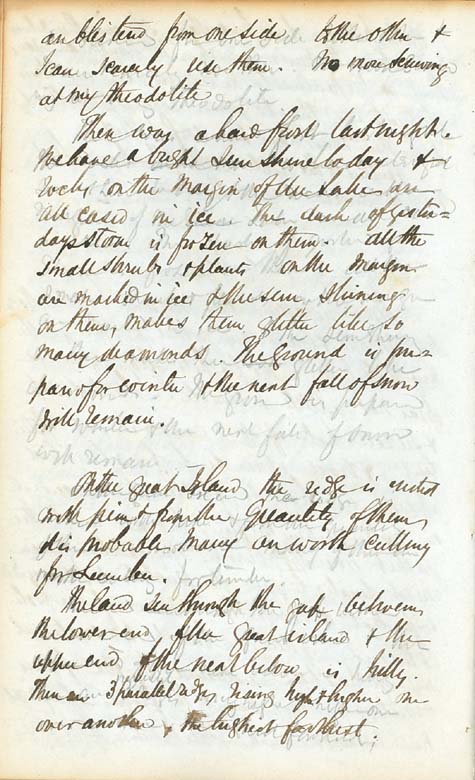 are blistered from one side to the other &
I can scarcely use them. No more screwing
at my theodolite
There was a hard frost last night.
We have a bright sun shine to day &
rocks on the margin of the Lake are
all cased in ice the dash of yester=
days storm is frozen on them. all the
small shrubs & plants on the margin
are masked in ice & the sun shining
on them, makes them glitter like so
many diamonds. The ground is pre=
pared for winter & the next fall of snow
will remain.
On the great Island the ridge is
with pine & from the quantity of them
it is probable many are worth cutting
for Lumber.
The land seen through the gap between
the lower end of the great island & the
upper end of the next below is hilly.
There are 3 parallel ridges rising higher & higher one
over another, the highest farthest.